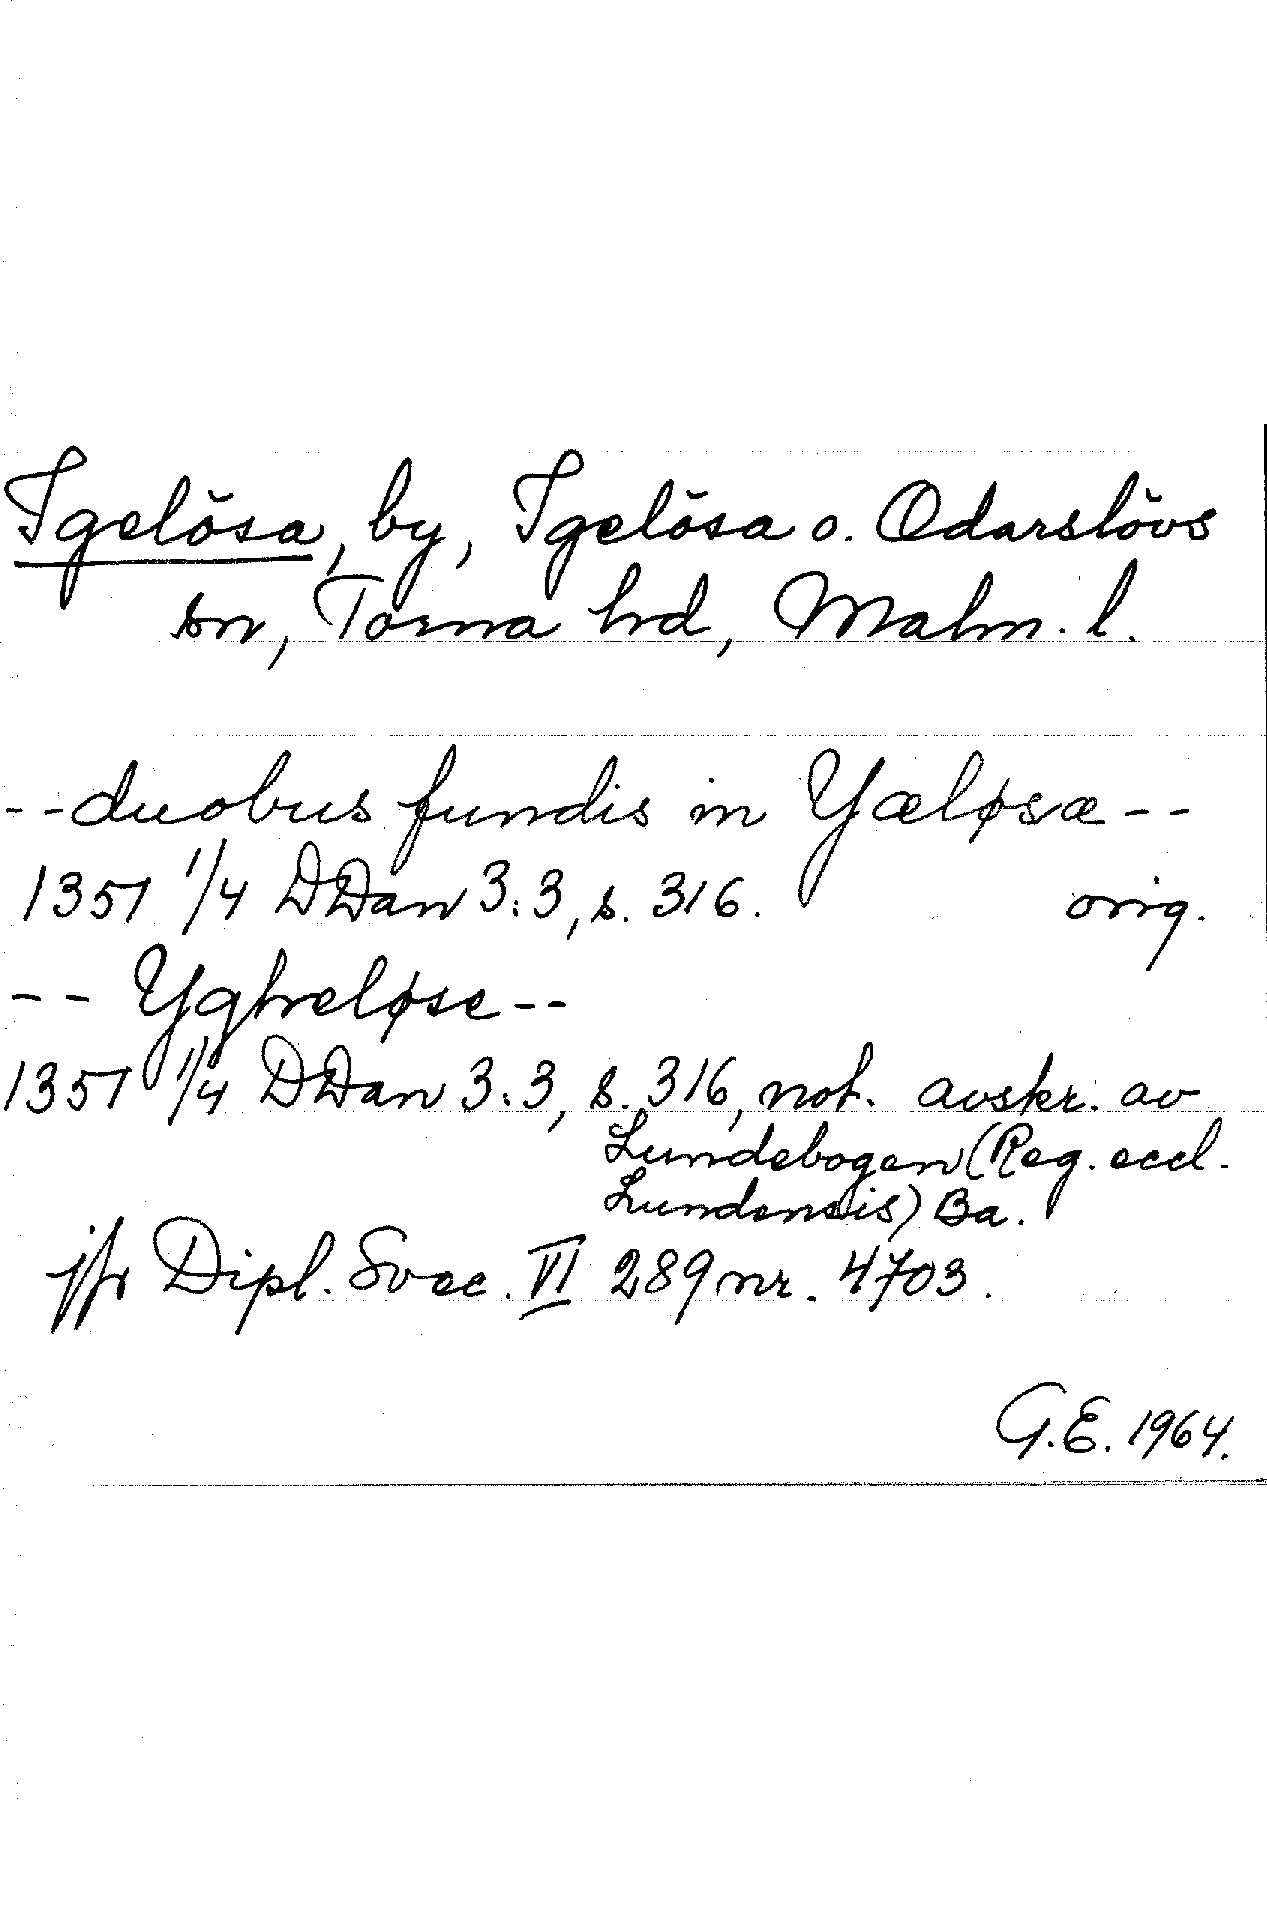 Igelösa, by, Igelösa o. Odarslövs
sn, Torna hrd, Malm. l.
--duobus fundis in Yæløsæ--
1351 1/4 DDan 3:3, s. 316. orig.
-- Ygheløse--
1351 1/4 DDan 3:3, s. 316, not. avskr. av
Lundebogen (Reg. eccl.
Lundensis) Ba.
jfr Dipl. Svec. VI 289 nr. 4703.
G.E. 1964.